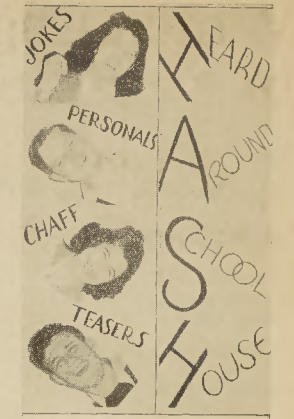 JOKES
PERSONALS
CHAFF
TEASERS
HEARD
AROUND
SCHOOL
HOUSE